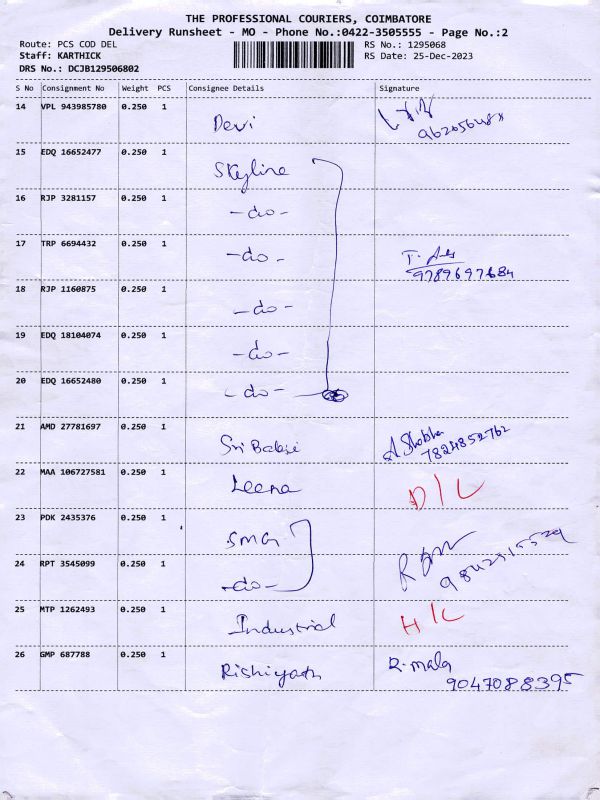 THE PROFESSIONAL COURIERS, COIMBATORE
Delivery Runsheet - MO - Phone No.:0422-3505555 - Page No.:2
Route: PCS COD DEL RS No.: 1295068
Staff: KARTHICK RS Date: 25-Dec-2023
DRS No.: DCJB129506802
S No Consignment No Weight PCS Consignee Details Signature
14 VPL 943985780 0.250 1 Devi
15 EDQ 16652477 0.250 1 Skyline
16 RJP 3281157 0.250 1 -do-
17 TRP 6694432 0.250 1 -do-
9789697684
18 RJP 1160875 0.250 1 -do-
19 EDQ 18104074 0.250 1 -do-
20 EDQ 16652480 0.250 1 -do-
21 AMD 27781697 0.250 1 Sri Balaji A. Shobha
7824852762
22 MAA 106727581 0.250 1 Leena D/L
23 PDK 2435376 0.250 1 SMG
24 RPT 3545099 0.250 1 -do-
25 MTP 1262493 0.250 1 Industrial H/L
26 GMP 687788 0.250 1 R. mala
9047088395